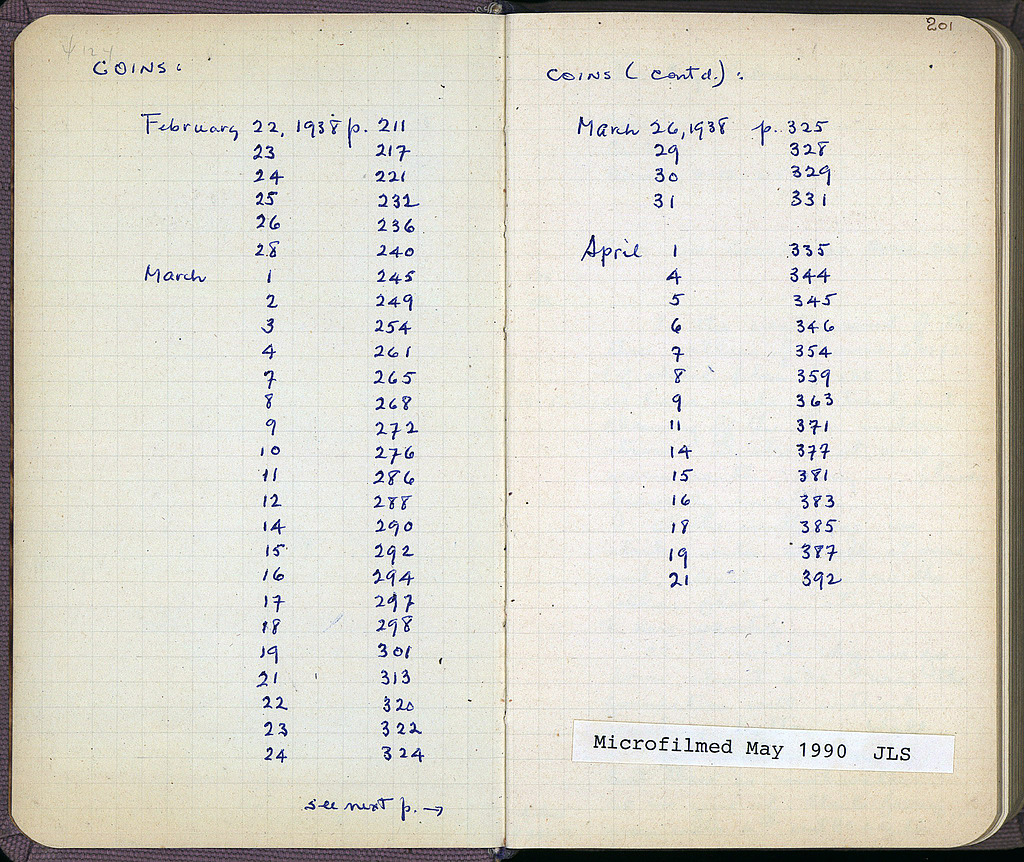 COINS:
February 22, 1938 p. 211
23 217
24 221
25 232
26 236
28 240
March 1 245
2 249
3 254
4 261
7 265
8 268
9 272
10 276
11 286
12 288
14 290
15 292
16 294
17 297
18 298
19 301
21 313
22 320
23 322
24 324
see next p. →
201
COINS (contd.):
March 26, 1938 p. 325
29 328
30 329
31 331
April 1 335
4 344
5 345
6 346
7 354
8 359
9 363
11 371
14 377
15 381
16 383
18 385
19 387
21 392
Microfilmed May 1990 JLS